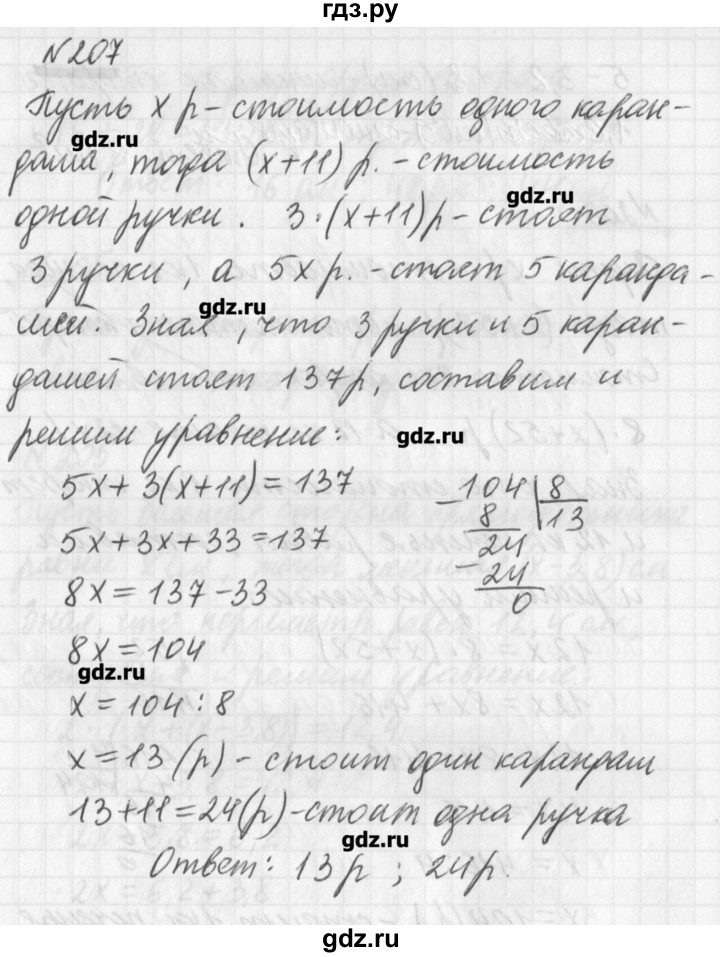 гдз.ру
N 207
gdz.ru
Пусть x р – стоимость одного каран-
gdz.ru
даша, тогда (x+11) р. – стоимость
gdz.ru
одной ручки. 3·(x+11)р – стоят
3 ручки, а 5x р. – стоят 5 каранда-
gdz.ru
шей. Зная, что 3 ручки и 5 каран-
дашей стоят 137р, составим и
решим уравнение:
gdz.ru
5x+3(x+11)=137
5x+3x+33=137
8x=137-33
8x=104
gdz.ru
x=104:8
104 8
8 13
24
24
0
x=13(р) – стоит один карандаш
13+11=24(р) – стоит одна ручка
gdz.ru
Ответ: 13р ; 24р.
gdz.ru